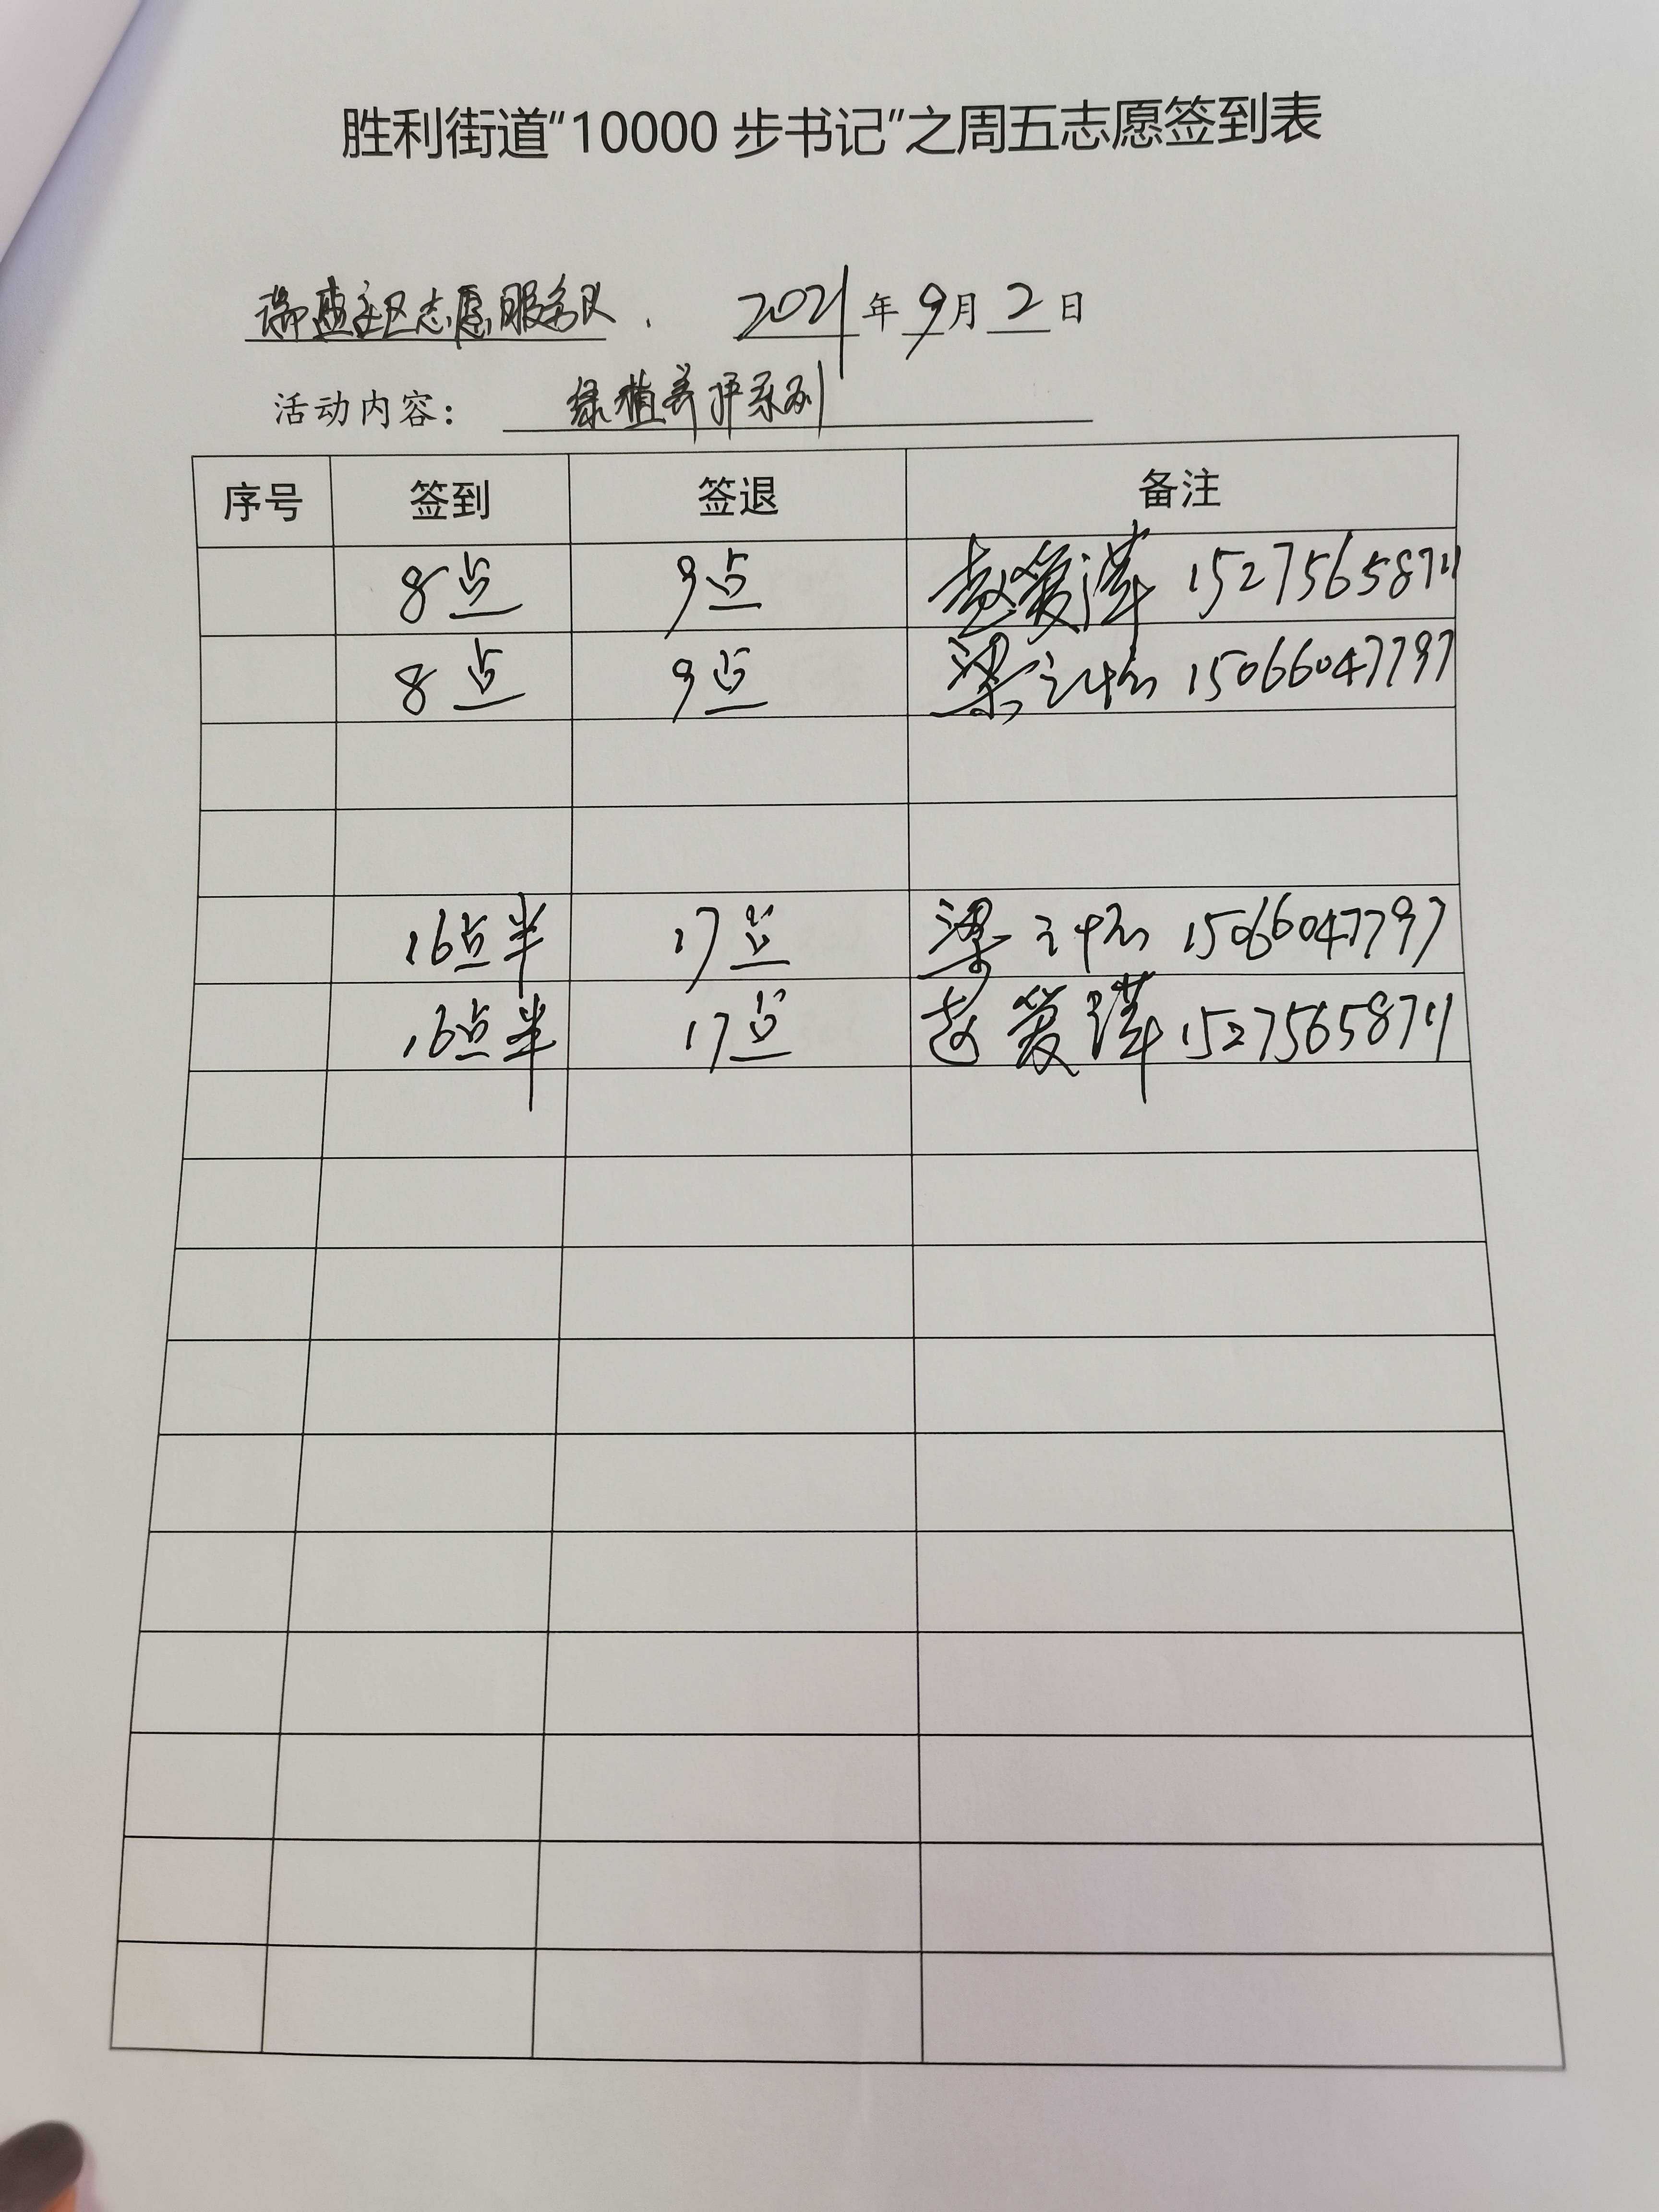 胜利街道“10000 步书记”之周五志愿签到表
瑞盛社区志愿服务队. 2021年9月2日
活动内容： 绿植养护系列
序号 签到 签退 备注
8点 9点 赵爱萍 15275658711
8点 9点 梁 15066047797
16点半 17点 梁 15066047797
16点半 17点 赵爱萍 15275658711